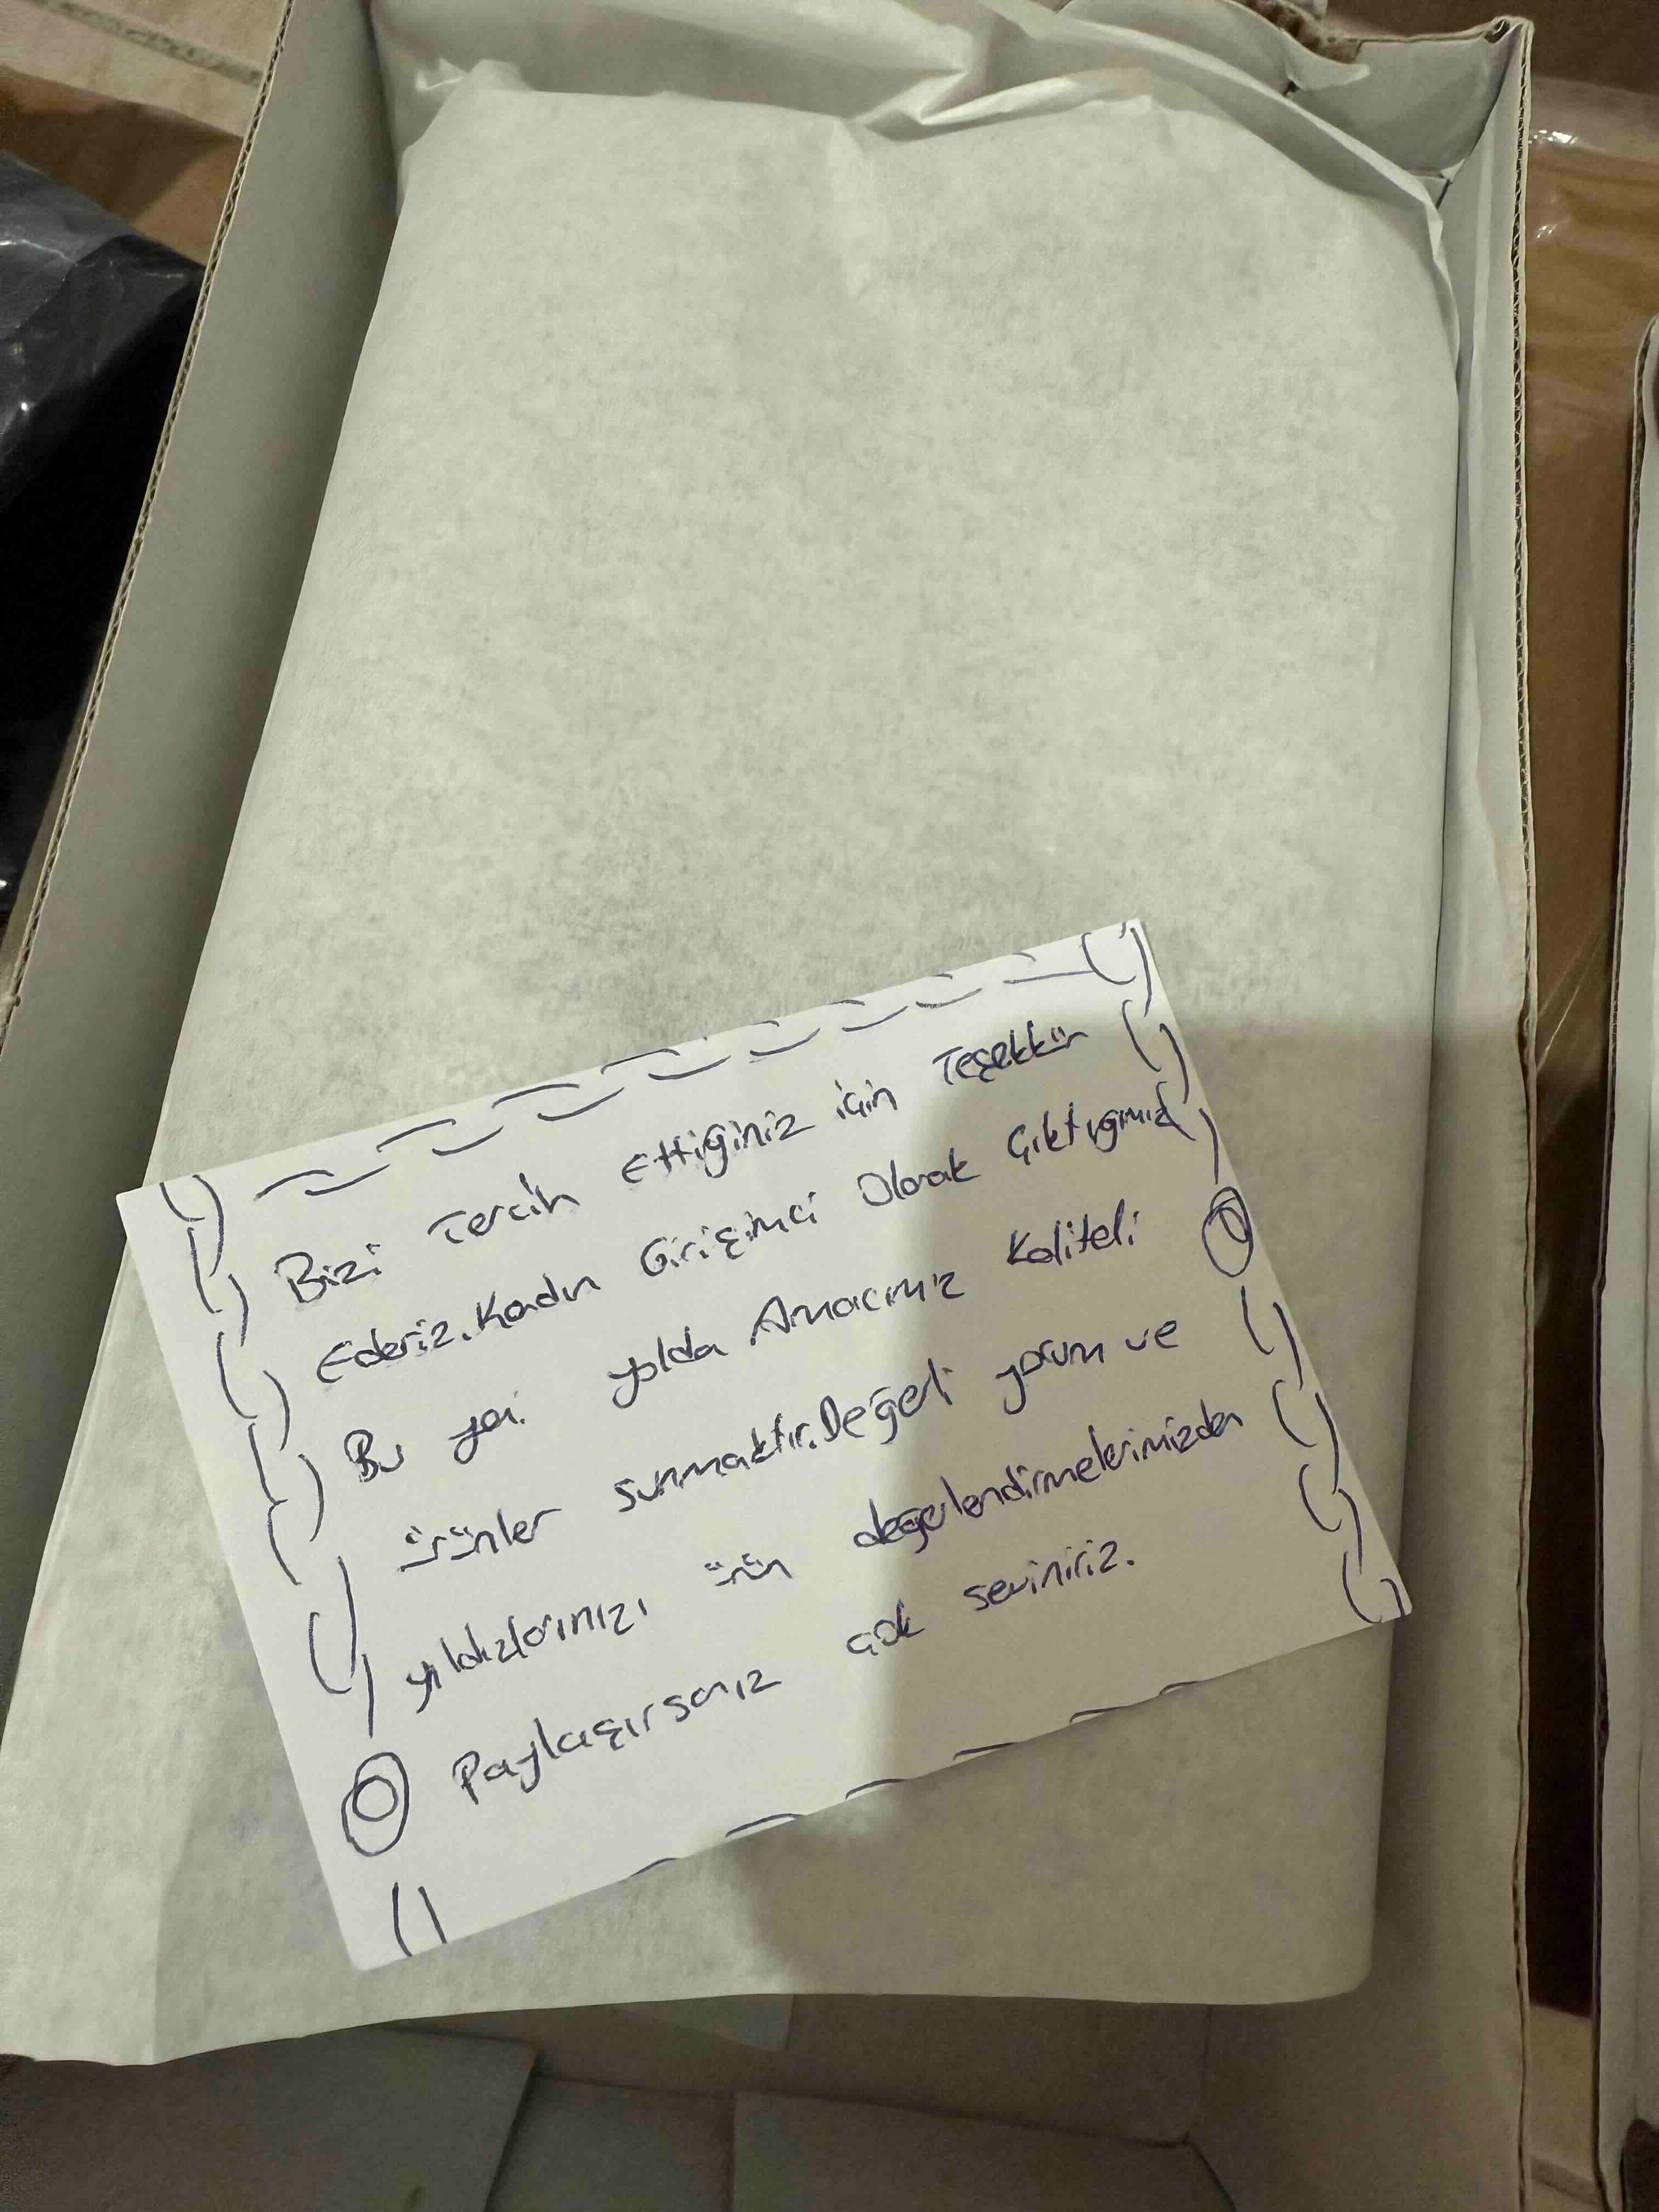 Bizi Tercih Ettiğiniz için Teşekkür
Ederiz. Kadın Girişimci Olarak Çıktığımız
Bu yeni yolda Amacımız Kaliteli
ürünler sunmaktır. Değerli yorum ve
yıldızlarınızı ürün değerlendirmelerimizden
Paylaşırsanız çok seviniriz.